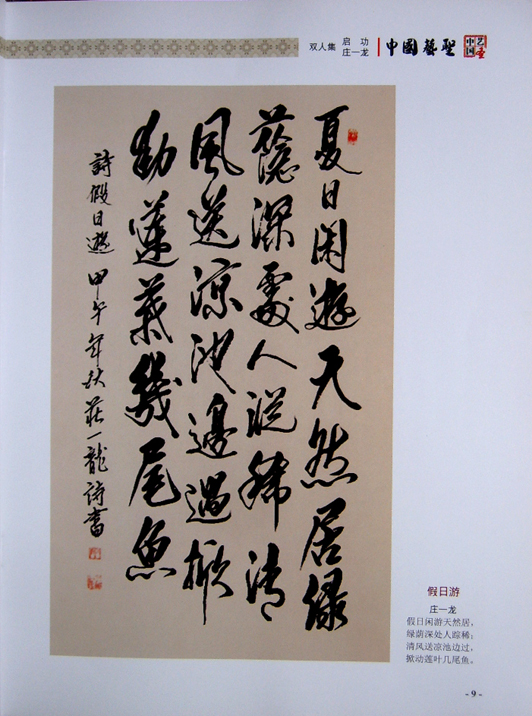 双人集
启 功
庄一龙
中國藝聖
中国
艺圣
夏日闲遊天然居绿
蔭深處人踪稀清
風送涼池邊過掀
動蓮葉幾尾魚
詩假日遊 甲午年秋莊一龍詩書
假日游
庄一龙
假日闲游天然居，
绿荫深处人踪稀；
清风送凉池边过，
掀动莲叶几尾鱼。
- 9 -